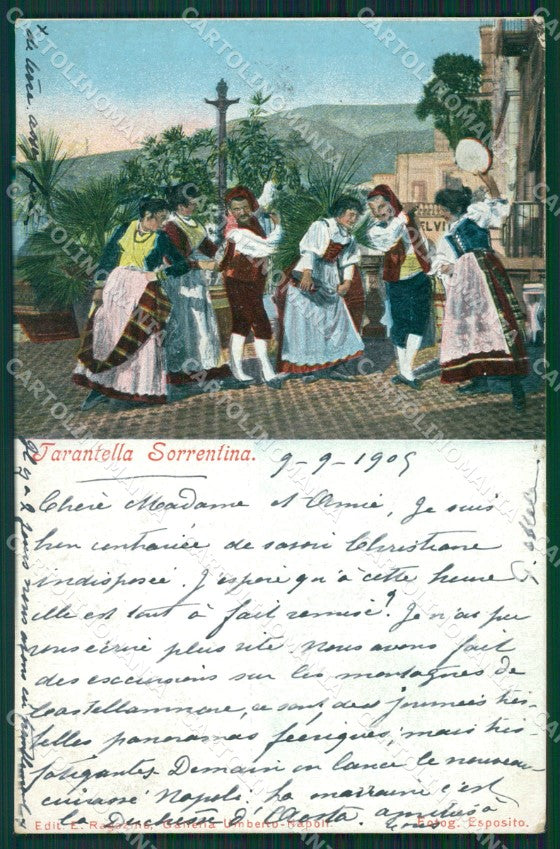 ELVI
Tarantella Sorrentina.
9-9-1905
Chère Madame et Amie, Je suis
bien contrariée de savoir Christiane
indisposée. J'espère qu'à cette heure
elle est tout à fait remise? Je n'ai pu
vous écrire plus vite nous avons fait
des excursions sur les montagnes de
Castellammare, ce sont des journées très
belles panoramas féeriques, mais très
fatigantes Demain on lance le nouveau
cuirassé Napoli, la marraine c'est
la Duchesse d'Aosta. amitiés à
Edit. E. Ragozino, Galleria Umberto-Napoli.
Fotog. Esposito.
CARTOLINOMANIA